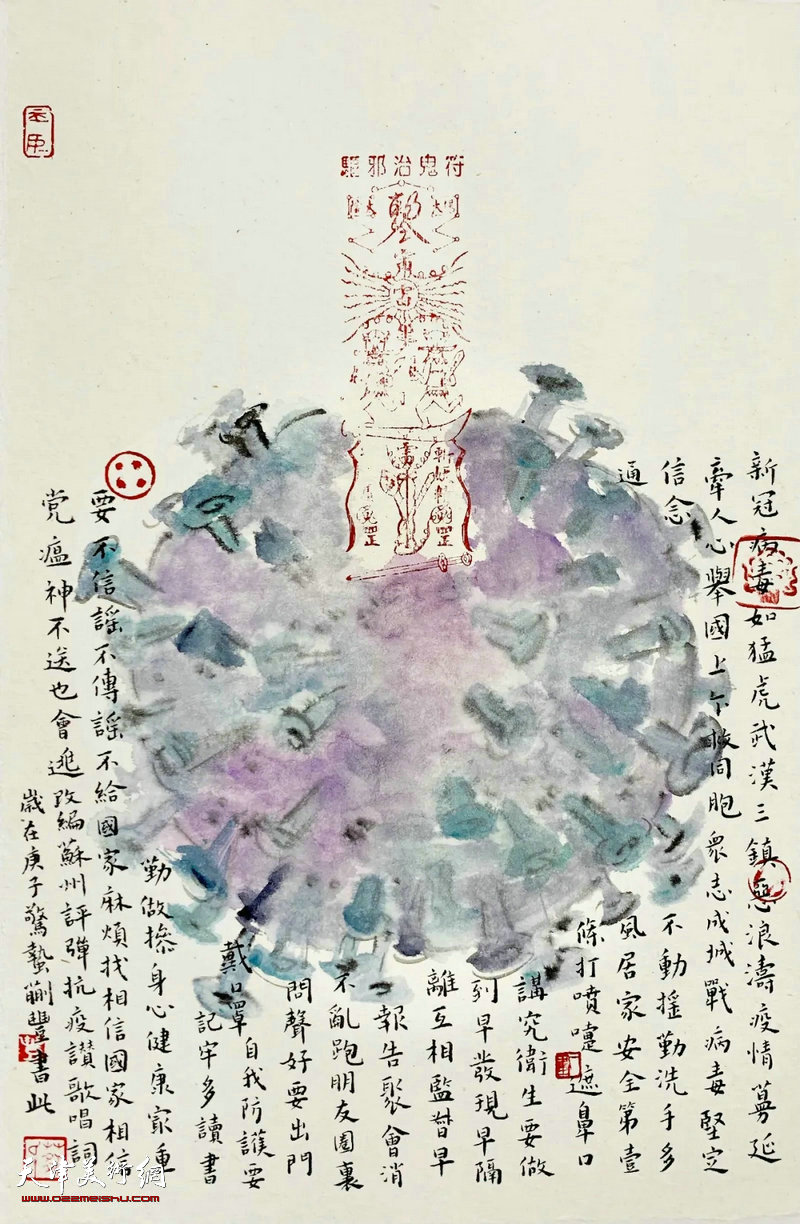 驅邪治鬼符
新冠病毒如猛虎武漢三鎮惡浪濤疫情蔓延
牽人心舉國上下救同胞衆志成城戰病毒堅定
信念不動搖勤洗手多
通風居家安全第壹
條打噴嚏遮鼻口
講究衛生要做
到早發現早隔
離互相監督早
報告聚會消
不亂跑朋友圈裏
問聲好要出門
戴口罩自我防護要
記牢多讀書
勤做操身心健康最重
要不信謠不傳謠不給國家麻煩找相信國家相信
党瘟神不送也會逃改編蘇州評彈抗疫讚歌唱詞
歲在庚子驚蟄蒯豐書此
天津美術網
www.022meishu.com